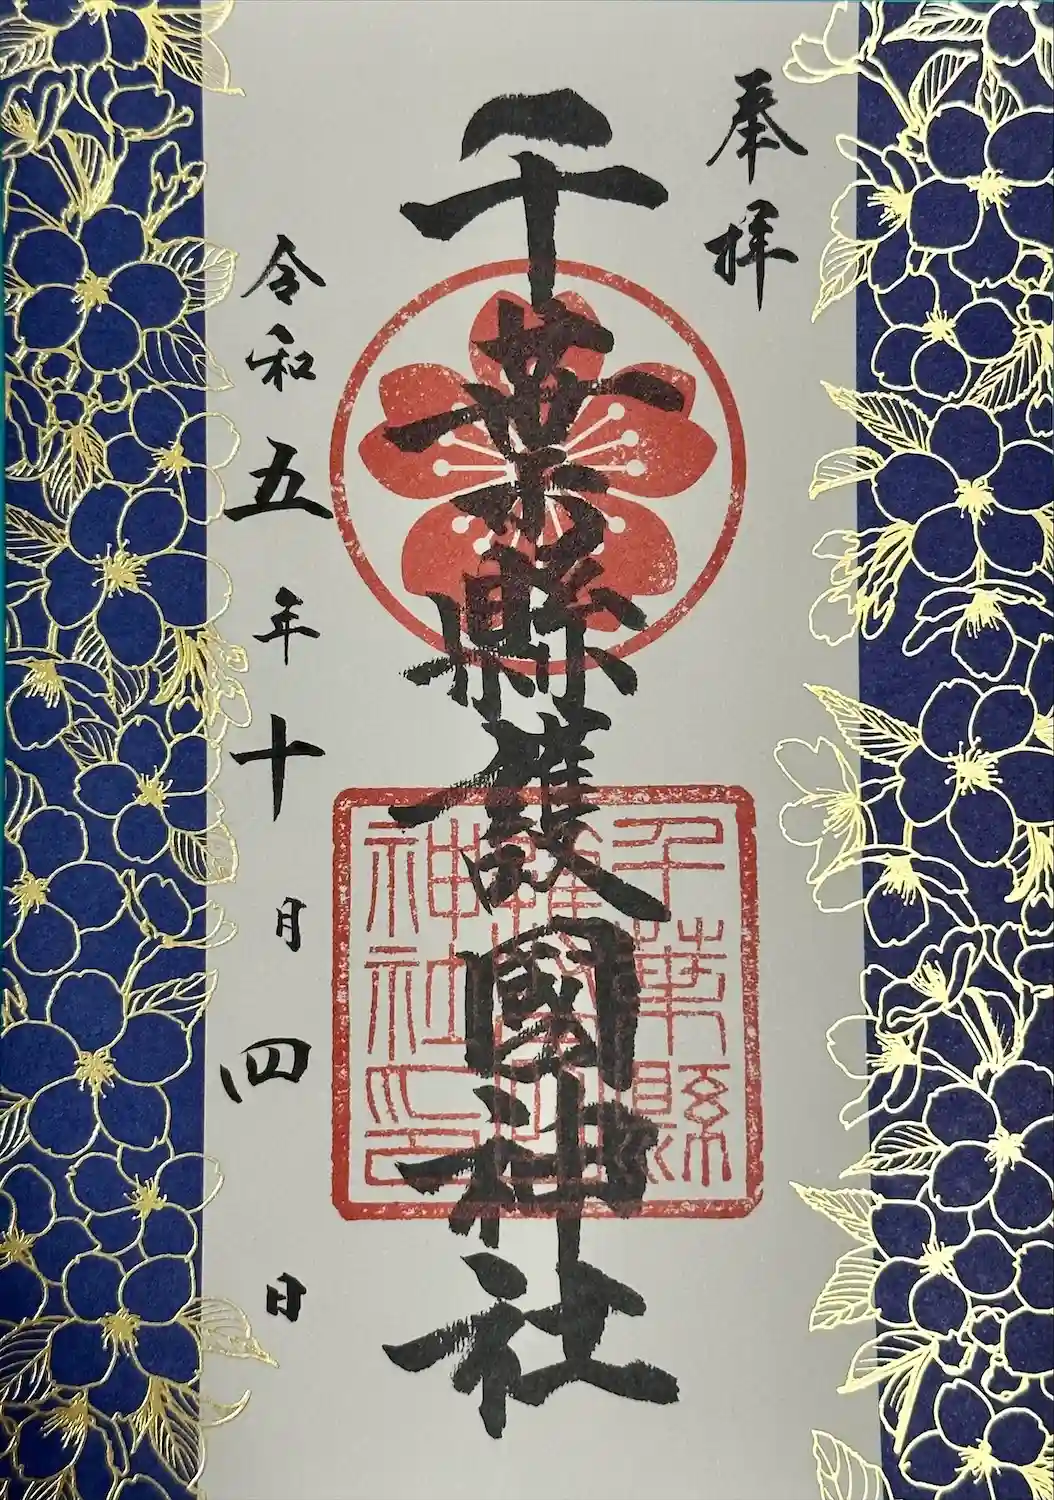 奉拝
千葉縣護國神社
千葉縣
護國
神社印
令和五年十月四日